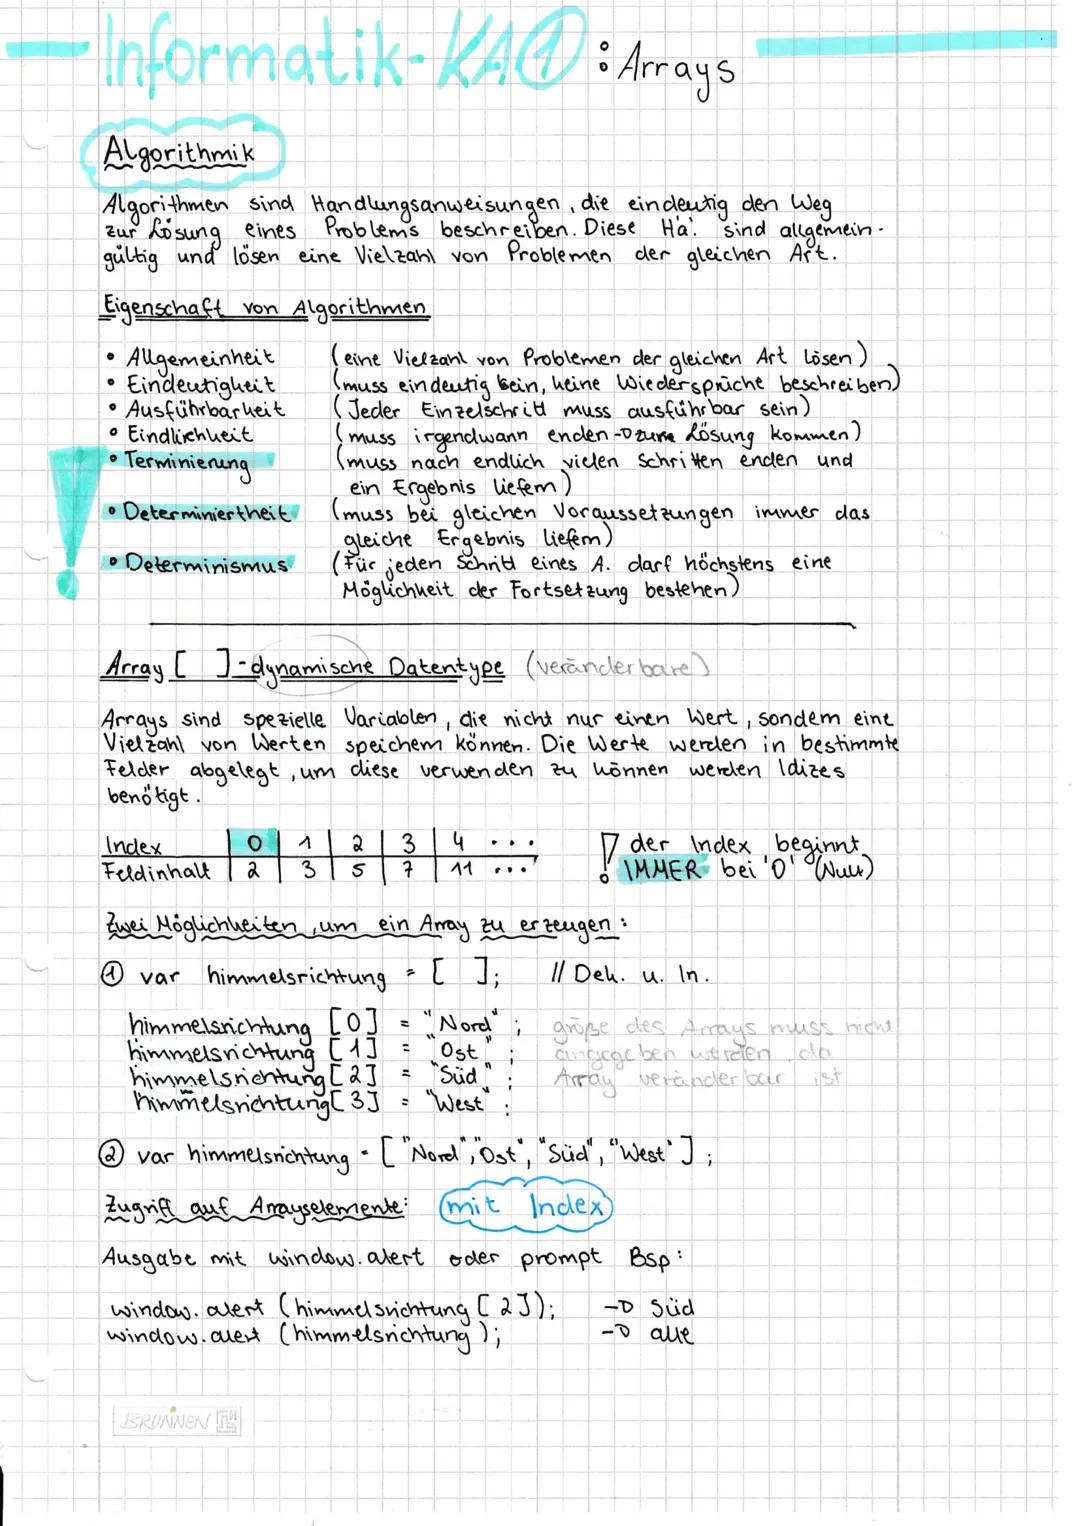 Informatik-KA①: Arrays
Algorithmik
Algorithmen sind Handlungsanweisungen, die eindeutig den Weg
zur Lösung eines Problems beschreiben. Diese Ha. sind allgemein-
gültig und lösen eine Vielzahl von Problemen der gleichen Art.
Eigenschaft von Algorithmen
• Allgemeinheit (eine Vielzahl von Problemen der gleichen Art lösen)
• Eindeutigkeit (muss eindeutig sein, keine Wiedersprüche beschreiben)
• Ausführbarkeit (Jeder Einzelschritt muss ausführbar sein)
• Endlichkeit (muss irgendwann enden → zur Lösung kommen)
• Terminierung (muss nach endlich vielen Schritten enden und
ein Ergebnis liefern)
! • Determiniertheit (muss bei gleichen Voraussetzungen immer das
gleiche Ergebnis liefern)
• Determinismus (Für jeden Schritt eines A. darf höchstens eine
Möglichkeit der Fortsetzung bestehen)
Array [ ] - dynamische Datentype (veränderbare)
Arrays sind spezielle Variablen, die nicht nur einen Wert, sondern eine
Vielzahl von Werten speichern können. Die Werte werden in bestimmte
Felder abgelegt, um diese verwenden zu können werden Idizes
benötigt.
Index | 0 | 1 | 2 | 3 | 4 ....
Feldinhalt | 2 | 3 | 5 | 7 | 11 ....
! der Index beginnt
IMMER bei '0' (Null)
Zwei Möglichkeiten, um ein Array zu erzeugen:
① var himmelsrichtung = [ ]; // Dek. u. In.
himmelsrichtung [0] = "Nord"; größe des Arrays muss nicht
himmelsrichtung [1] = "Ost"; angegeben werden, da
himmelsrichtung [2] = "Süd"; Array veränderbar ist
himmelsrichtung [3] = "West";
② var himmelsrichtung = ["Nord", "Ost", "Süd", "West"];
Zugriff auf Arrayselemente: mit Index
Ausgabe mit window.alert oder prompt Bsp:
window.alert (himmelsrichtung [2]); → Süd
window.alert (himmelsrichtung); → alle
BRUNNEN